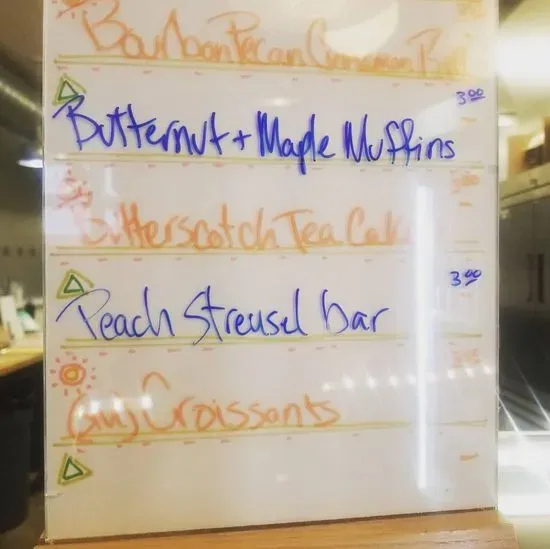 Bourbon Pecan Cinnamon
3.00
Butternut + Maple Muffins
Butterscotch Tea Cake
3.00
Peach Streusel bar
Croissants